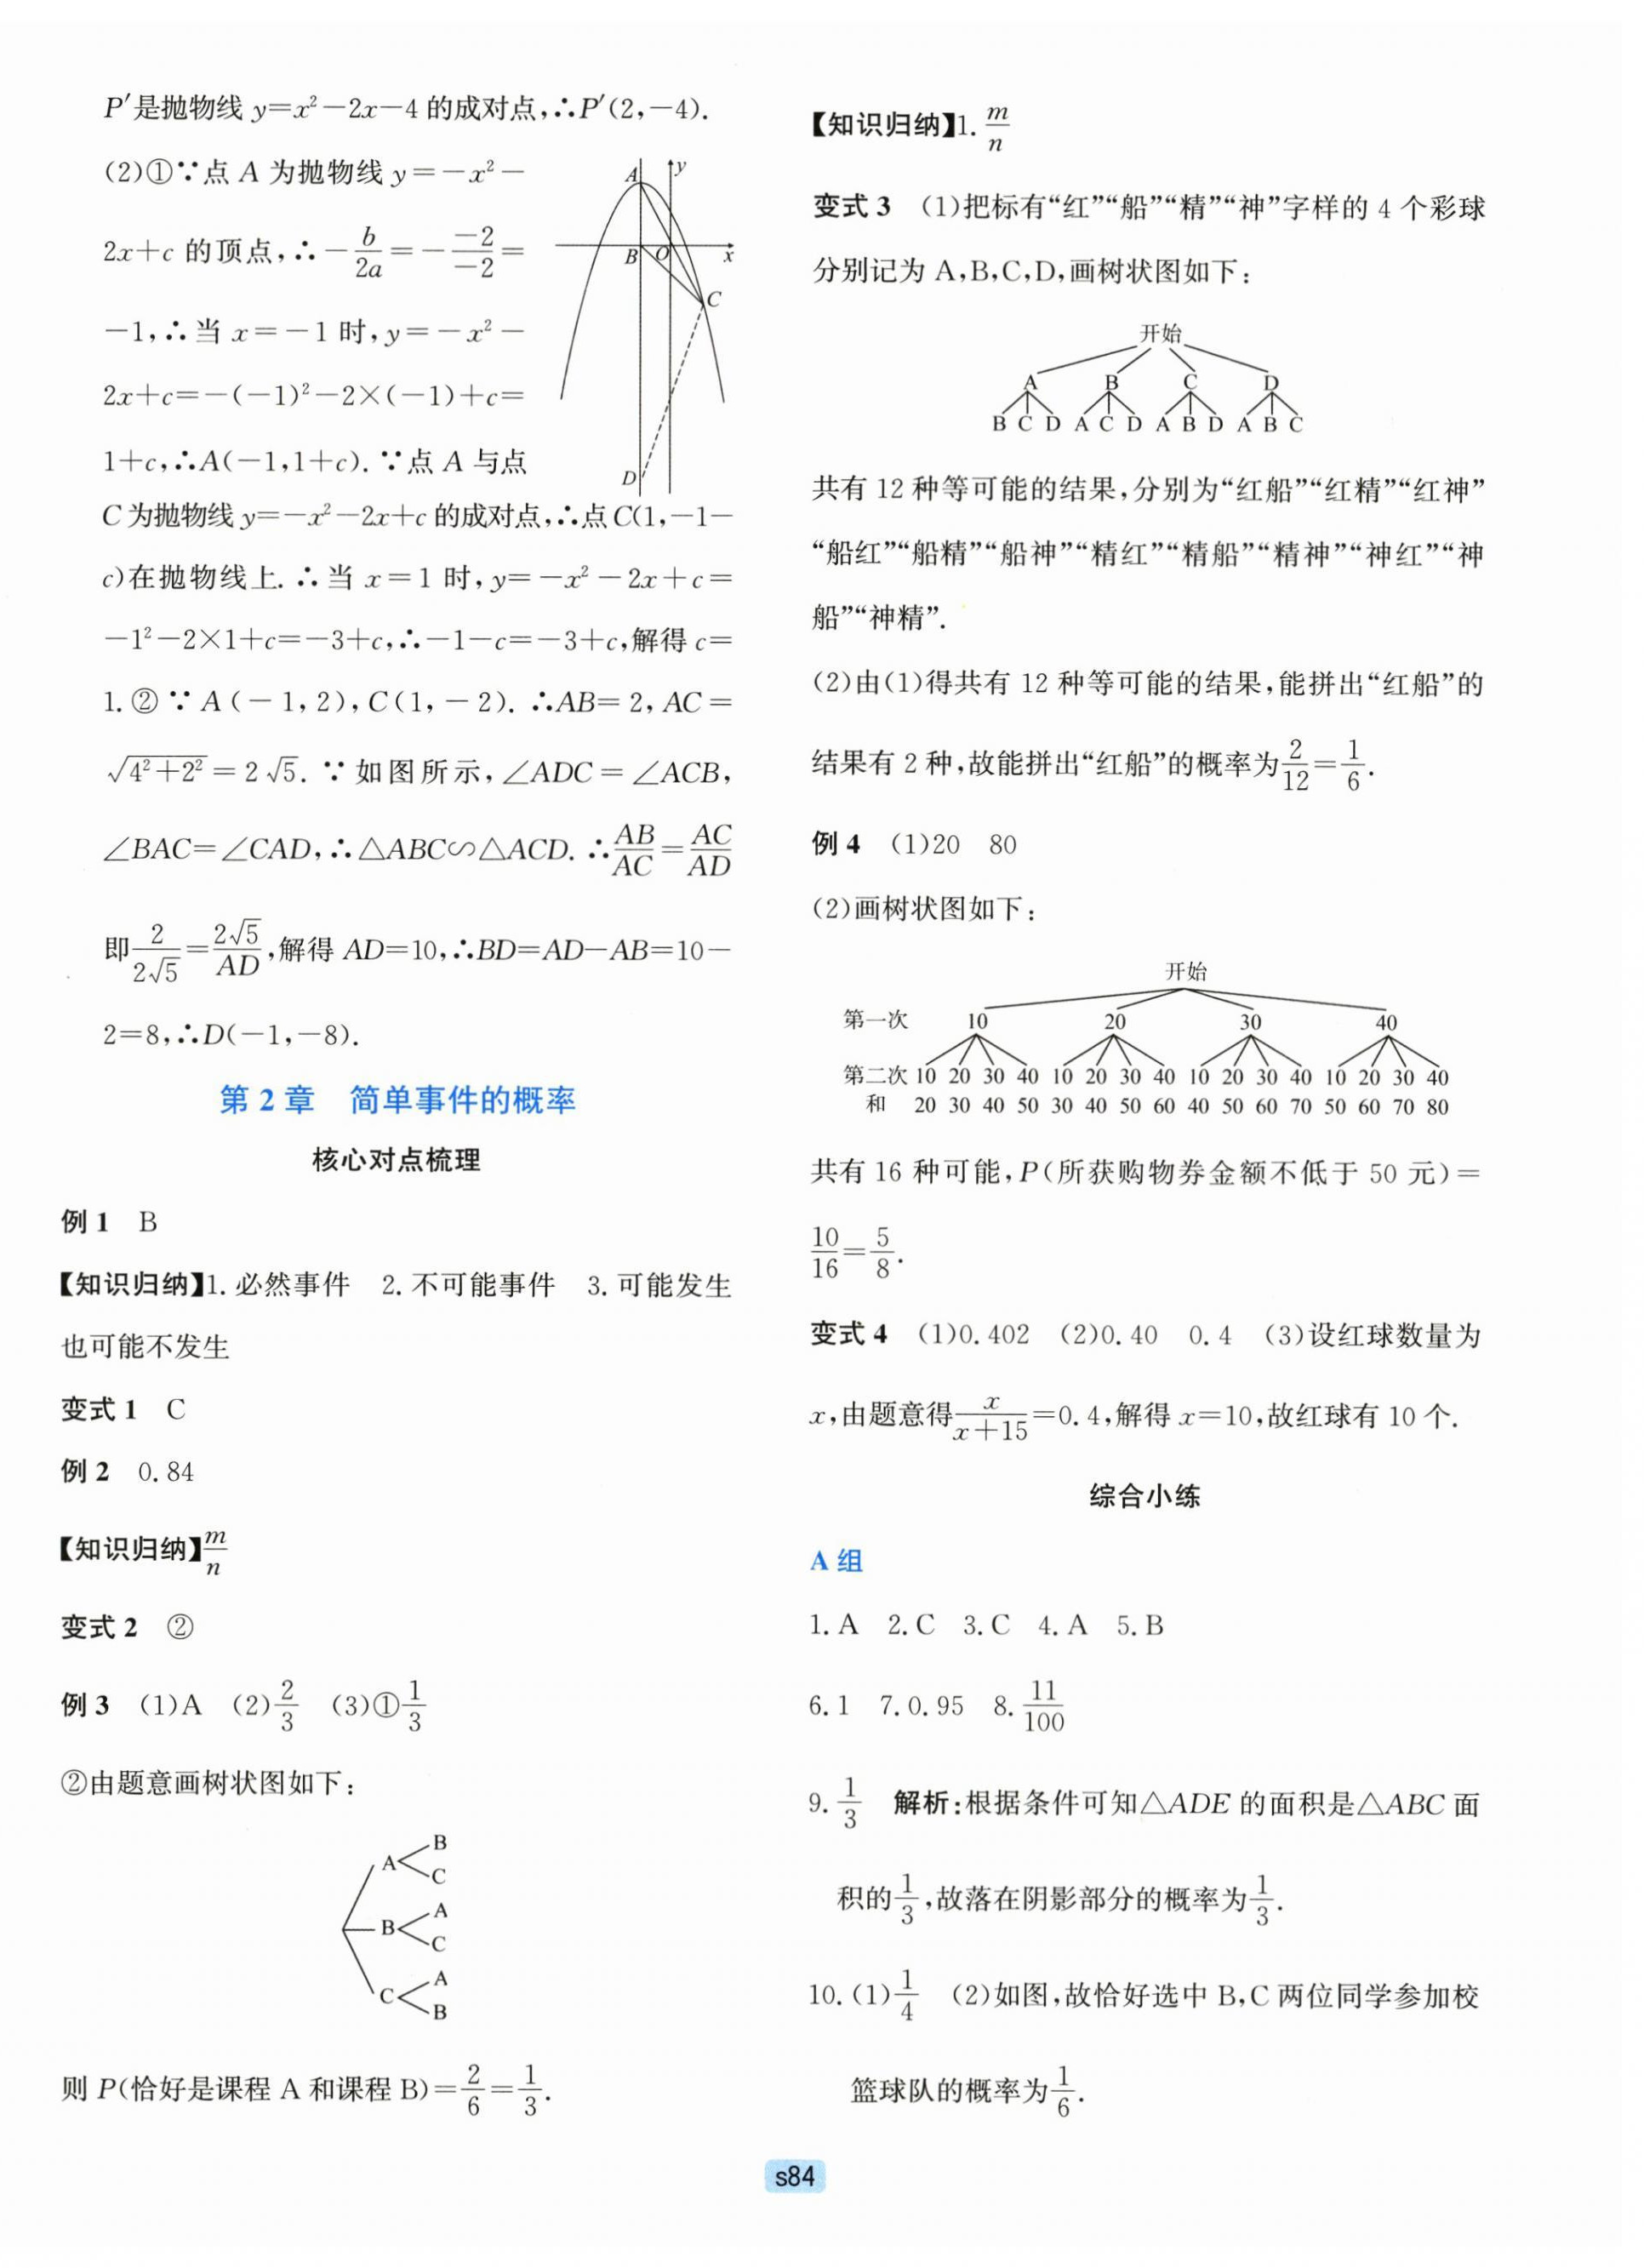 P′是抛物线 y=x²−2x−4 的成对点,∴P′(2,−4).
(2)①∵点 A 为抛物线 y=−x²−
2x+c 的顶点,∴−b/2a=−−2/−2=
−1,∴当 x=−1 时,y=−x²−
2x+c=−(−1)²−2×(−1)+c=
1+c,∴A(−1,1+c).∵点 A 与点
A
y
B
O
x
C
D
C为抛物线 y=−x²−2x+c 的成对点,∴点 C(1,−1−
c)在抛物线上.∴当 x=1 时,y=−x²−2x+c=
−1²−2×1+c=−3+c,∴−1−c=−3+c,解得 c=
1.②∵A(−1,2),C(1,−2).∴AB=2,AC=
√(4²+2²)=2√5.∵如图所示,∠ADC=∠ACB,
∠BAC=∠CAD,∴△ABC∽△ACD.∴AB/AC=AC/AD
即2/2√5=2√5/AD,解得 AD=10,∴BD=AD−AB=10−
2=8,∴D(−1,−8).
第 2 章 简单事件的概率
核心对点梳理
例 1 B
【知识归纳】1.必然事件 2.不可能事件 3.可能发生
也可能不发生
变式 1 C
例 2 0.84
【知识归纳】m/n
变式 2 ②
例 3 (1)A (2)2/3 (3)①1/3
②由题意画树状图如下:
B
A
C
A
B
C
A
C
B
则 P(恰好是课程 A 和课程 B)=2/6=1/3.
【知识归纳】1.m/n
变式 3 (1)把标有“红”“船”“精”“神”字样的 4 个彩球
分别记为 A,B,C,D,画树状图如下:
开始
A B C D
B C D A C D A B D A B C
共有 12 种等可能的结果,分别为“红船”“红精”“红神”
“船红”“船精”“船神”“精红”“精船”“精神”“神红”“神
船”“神精”.
(2)由(1)得共有 12 种等可能的结果,能拼出“红船”的
结果有 2 种,故能拼出“红船”的概率为2/12=1/6.
例 4 (1)20 80
(2)画树状图如下:
开始
第一次 10 20 30 40
第二次 10 20 30 40 10 20 30 40 10 20 30 40 10 20 30 40
和 20 30 40 50 30 40 50 60 40 50 60 70 50 60 70 80
共有 16 种可能,P(所获购物券金额不低于 50 元)=
10/16=5/8.
变式 4 (1)0.402 (2)0.40 0.4 (3)设红球数量为
x,由题意得x/x+15=0.4,解得 x=10,故红球有 10 个.
综合小练
A 组
1.A 2.C 3.C 4.A 5.B
6.1 7.0.95 8.11/100
9.1/3 解析:根据条件可知△ADE 的面积是△ABC 面
积的1/3,故落在阴影部分的概率为1/3.
10.(1)1/4 (2)如图,故恰好选中 B,C 两位同学参加校
篮球队的概率为1/6.
s84